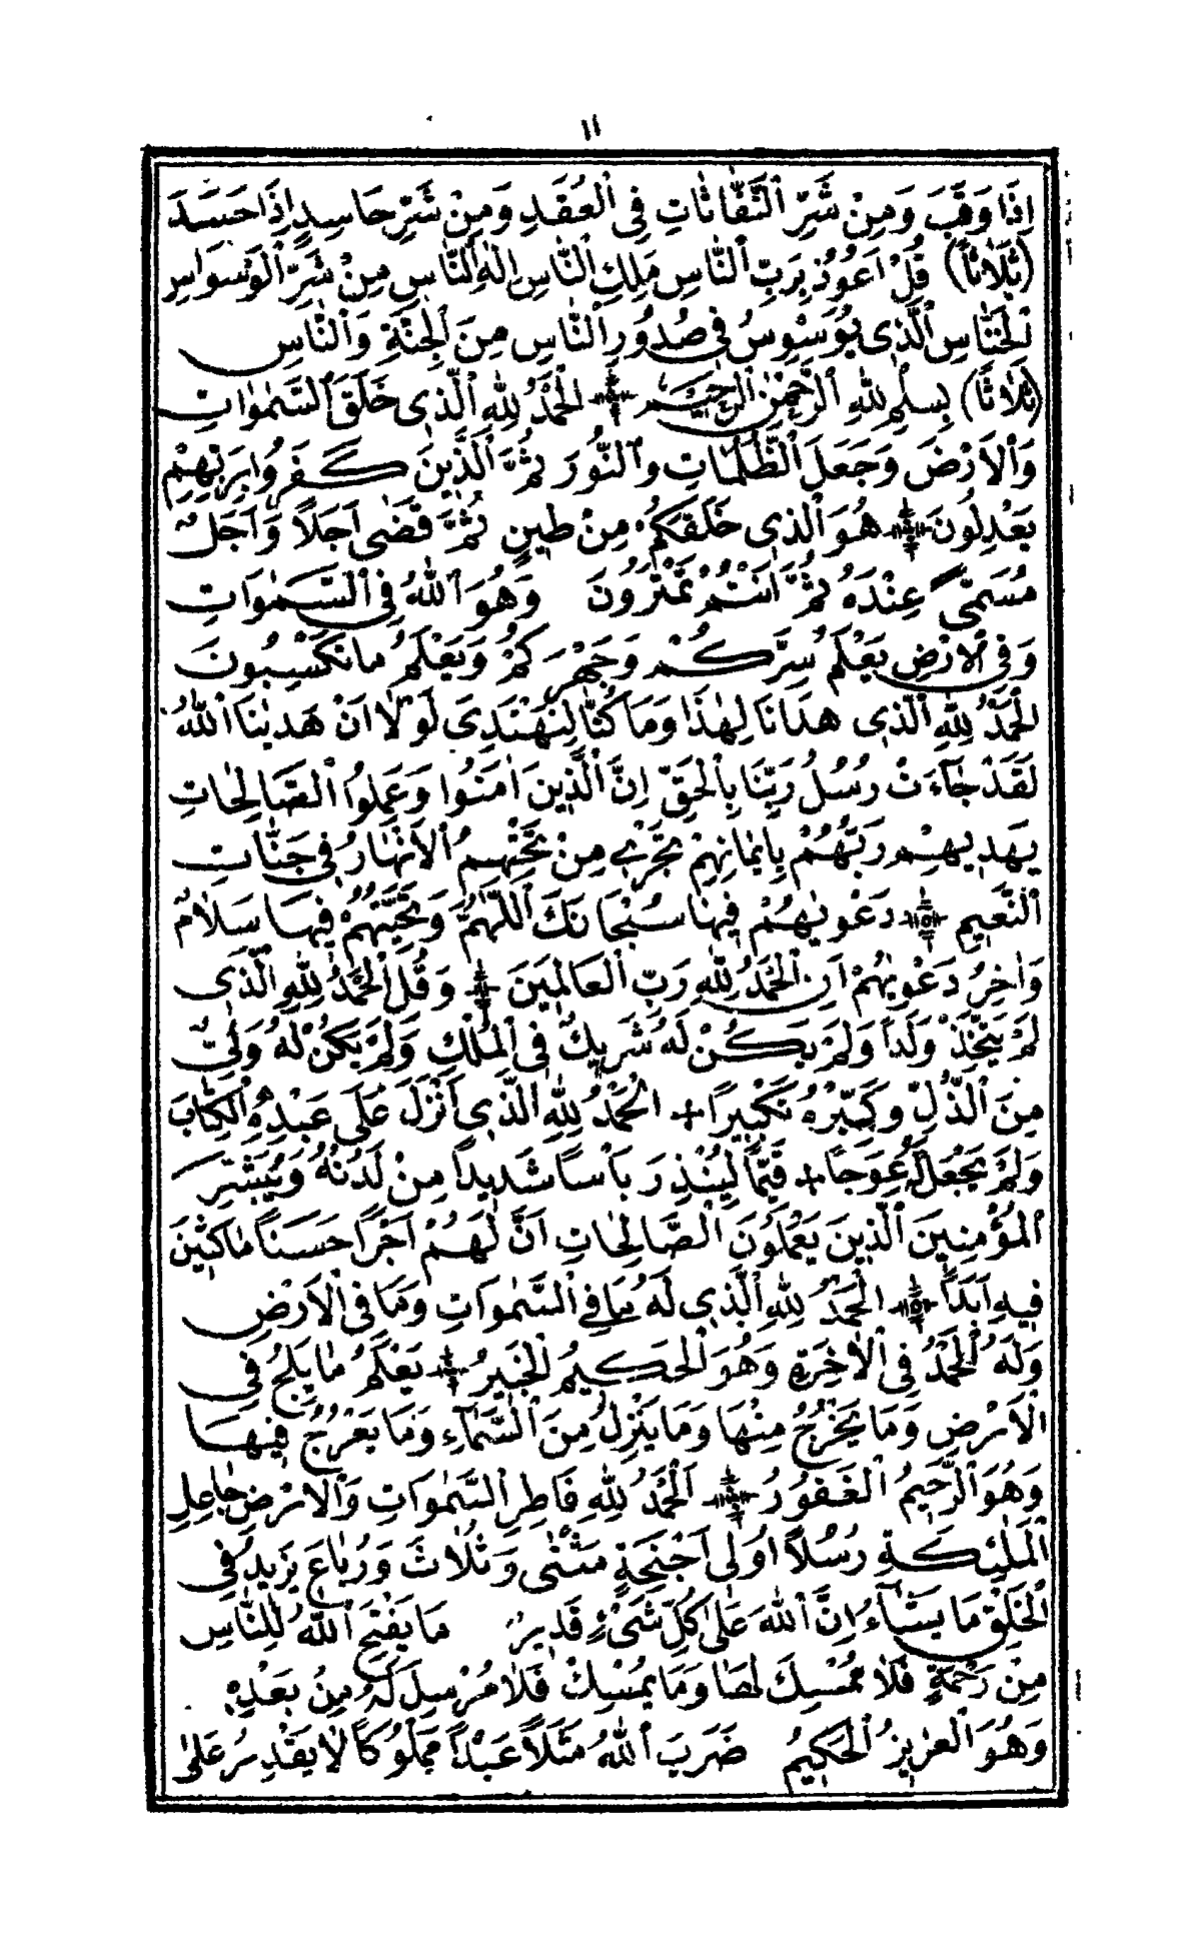 ١١
اِذَا وَقَبَ وَمِنْ شَرِّ ٱلنَّفَّاثَاتِ فِى ٱلْعُقَدِ وَمِنْ شَرِّ حَاسِدٍ اِذَا حَسَدَ
(ثَلَاثاً) قُلْ اَعُوذُ بِرَبِّ ٱلنَّاسِ مَلِكِ ٱلنَّاسِ اِلٰهِ ٱلنَّاسِ مِنْ شَرِّ ٱلْوَسْوَاسِ
ٱلْخَنَّاسِ ٱلَّذِى يُوَسْوِسُ فِى صُدُورِ ٱلنَّاسِ مِنَ ٱلْجِنَّةِ وَٱلنَّاسِ
(ثَلَاثًا) بِسْمِ ٱللهِ ٱلرَّحْمٰنِ ٱلرَّحِيمِ ۞ اَلْحَمْدُ لِلّٰهِ ٱلَّذِى خَلَقَ ٱلسَّمٰوَاتِ
وَٱلْاَرْضَ وَجَعَلَ ٱلظُّلُمَاتِ وٱلنُّورَ ثُمَّ ٱلَّذِينَ كَفَرُوا بِرَبِّهِمْ
يَعْدِلُونَ ۞ هُوَ ٱلَّذِى خَلَقَكُمْ مِنْ طِينٍ ثُمَّ قَضٰى اَجَلاً وَاَجَلٌ
مُسَمًّى عِنْدَهُ ثُمَّ اَنْتُمْ تَمْتَرُونَ وَهُوَ ٱللهُ فِى ٱلسَّمٰوَاتِ
وَفِى ٱلْاَرْضِ يَعْلَمُ سِرَّكُمْ وَجَهْرَكُمْ وَيَعْلَمُ مَا تَكْسِبُونَ
اَلْحَمْدُ لِلّٰهِ ٱلَّذِى هَدَانَا لِهٰذَا وَمَا كُنَّا لِنَهْتَدِىَ لَوْلَا اَنْ هَدٰينَا ٱللهُ
لَقَدْ جَآءَتْ رُسُلُ رَبِّنَا بِٱلْحَقِّ اِنَّ ٱلَّذِينَ اٰمَنُوا وَعَمِلُوا ٱلصَّالِحَاتِ
يَهْدِيهِمْ رَبُّهُمْ بِاِيمَانِهِمْ تَجْرِى مِنْ تَحْتِهِمُ ٱلْاَنْهَارُ فِى جَنَّاتِ
ٱلنَّعِيمِ ۞ دَعْوٰيهُمْ فِيهَا سُبْحَانَكَ ٱللّٰهُمَّ وَتَحِيَّتُهُمْ فِيهَا سَلَامٌ
وَاٰخِرُ دَعْوٰيهُمْ اَنِ ٱلْحَمْدُ لِلّٰهِ رَبِّ ٱلْعَالَمِينَ ۞ وَقُلِ ٱلْحَمْدُ لِلّٰهِ ٱلَّذِى
لَمْ يَتَّخِذْ وَلَداً وَلَمْ يَكُنْ لَهُ شَرِيكٌ فِى ٱلْمُلْكِ وَلَمْ يَكُنْ لَهُ وَلِىٌّ
مِنَ ٱلذُّلِّ وَكَبِّرْهُ تَكْبِيرًا + اَلْحَمْدُ لِلّٰهِ ٱلَّذِى اَنْزَلَ عَلَى عَبْدِهِ ٱلْكِتَابَ
وَلَمْ يَجْعَلْ لَهُ عِوَجاً + قَيِّماً لِيُنْذِرَ بَأْساً شَدِيداً مِنْ لَدُنْهُ وَيُبَشِّرَ
ٱلْمُؤْمِنِينَ ٱلَّذِينَ يَعْمَلُونَ ٱلصَّالِحَاتِ اَنَّ لَهُمْ اَجْرًا حَسَنًا مَاكِثِينَ
فِيهِ اَبَداً ۞ اَلْحَمْدُ لِلّٰهِ ٱلَّذِى لَهُ مَا فِى ٱلسَّمٰوَاتِ وَمَا فِى ٱلْاَرْضِ
وَلَهُ ٱلْحَمْدُ فِى ٱلْاٰخِرَةِ وَهُوَ ٱلْحَكِيمُ ٱلْخَبِيرُ ۞ يَعْلَمُ مَا يَلِجُ فِى
ٱلْاَرْضِ وَمَا يَخْرُجُ مِنْهَا وَمَا يَنْزِلُ مِنَ ٱلسَّمَآءِ وَمَا يَعْرُجُ فِيهَا
وَهُوَ ٱلرَّحِيمُ ٱلْغَفُورُ ۞ اَلْحَمْدُ لِلّٰهِ فَاطِرِ ٱلسَّمٰوَاتِ وَٱلْاَرْضِ جَاعِلِ
ٱلْمَلٰئِكَةِ رُسُلًا اُولِى اَجْنِحَةٍ مَثْنٰى وَثُلَاثَ وَرُبَاعَ يَزِيدُ فِى
ٱلْخَلْقِ مَا يَشَآءُ اِنَّ ٱللهَ عَلٰى كُلِّ شَىْءٍ قَدِيرٌ مَا يَفْتَحِ ٱللهُ لِلنَّاسِ
مِنْ رَحْمَةٍ فَلَا مُمْسِكَ لَهَا وَمَا يُمْسِكْ فَلَا مُرْسِلَ لَهُ مِنْ بَعْدِهِ
وَهُوَ ٱلْعَزِيزُ ٱلْحَكِيمُ ضَرَبَ ٱللهُ مَثَلاً عَبْداً مَمْلُوكاً لَا يَقْدِرُ عَلٰى